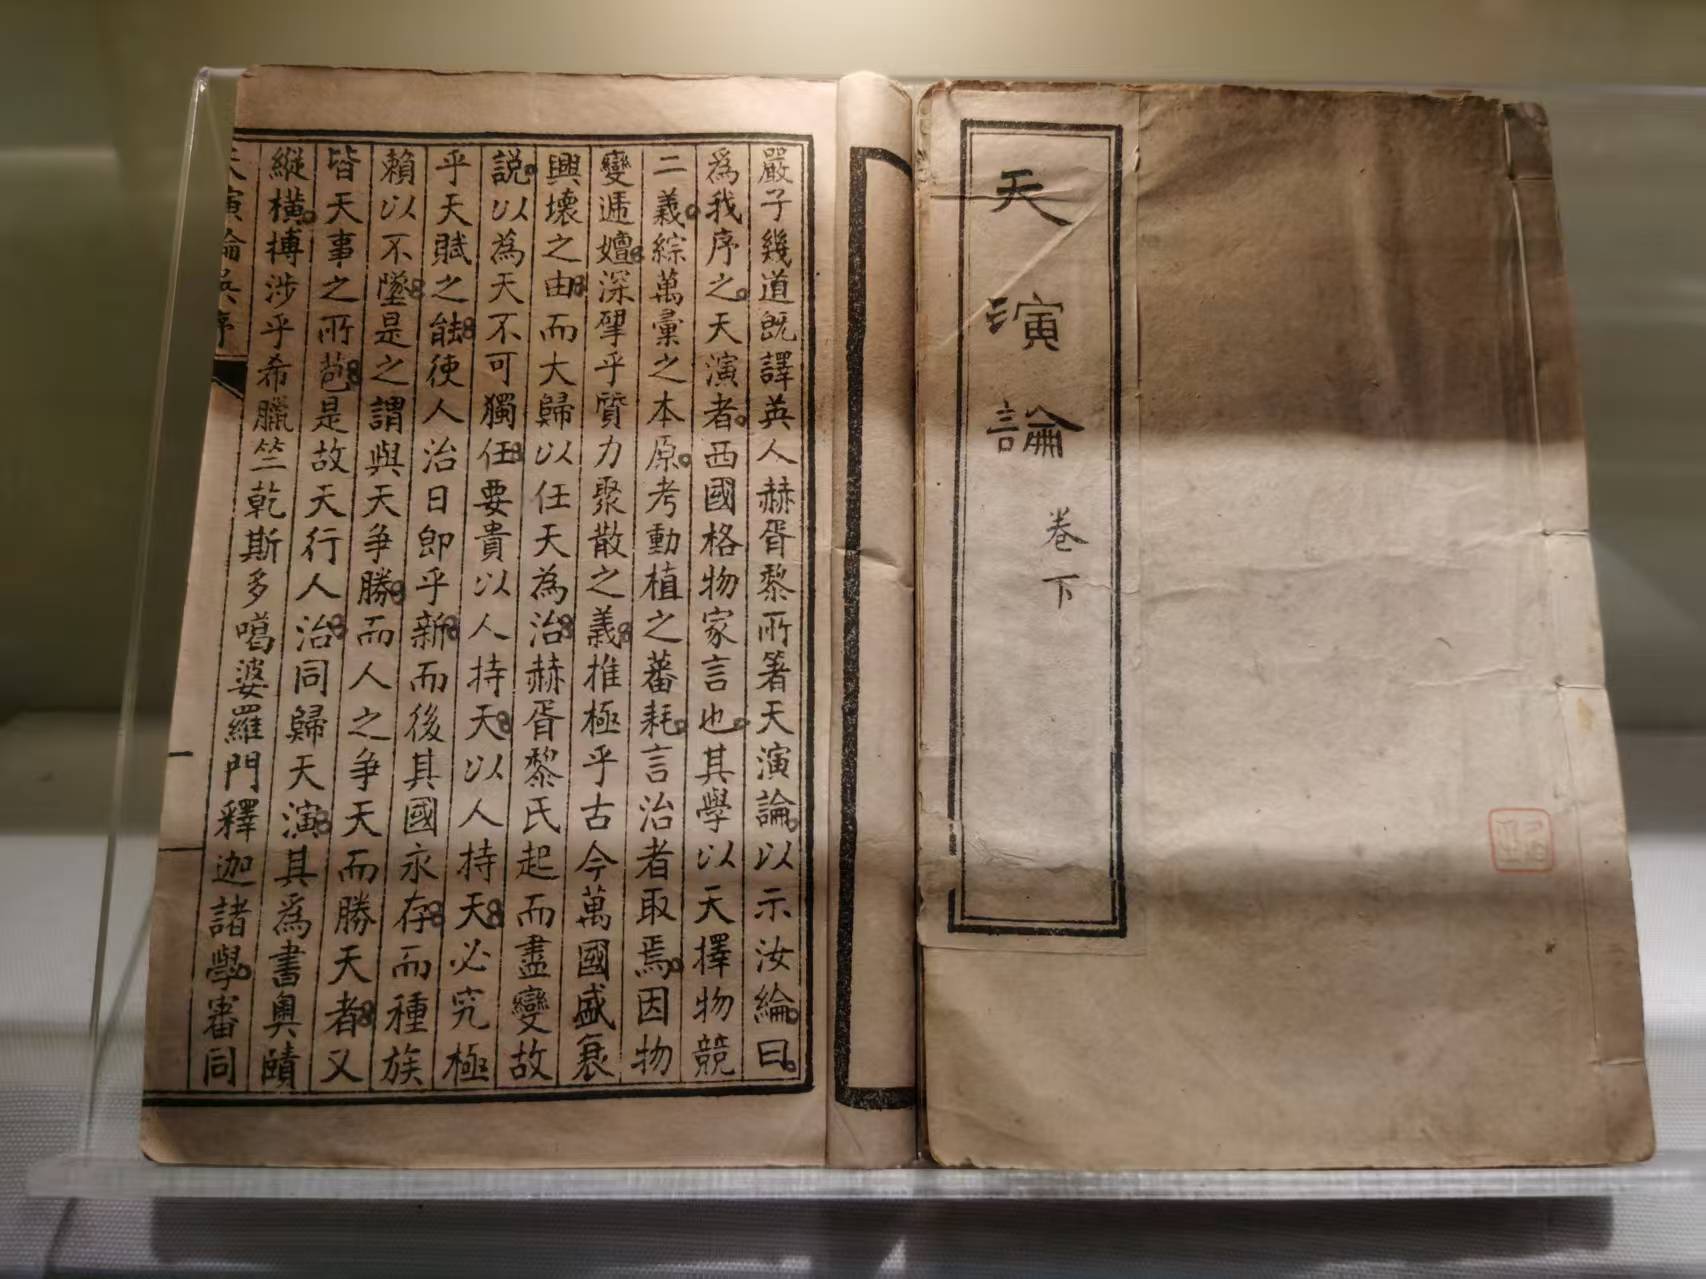 天演論
卷下
嚴子幾道既譯英人赫胥黎所著天演論以示汝綸曰
爲我序之天演者西國格物家言也其學以天擇物競
二義綜萬彙之本原考動植之蕃耗言治者取焉因物
變遞嬗深揅乎質力聚散之義推極乎古今萬國盛衰
興壞之由而大歸以任天為治赫胥黎氏起而盡變故
說以為天不可獨任要貴以人持天以人持天必究極
乎天賦之能使人治日即乎新而後其國永存而種族
賴以不墜是之謂與天爭勝而人之爭天而勝天者又
皆天事之所苞是故天行人治同歸天演其為書奧賾
縱橫摶涉乎希臘竺乾斯多噶婆羅門釋迦諸學審同
天演論吳序
一